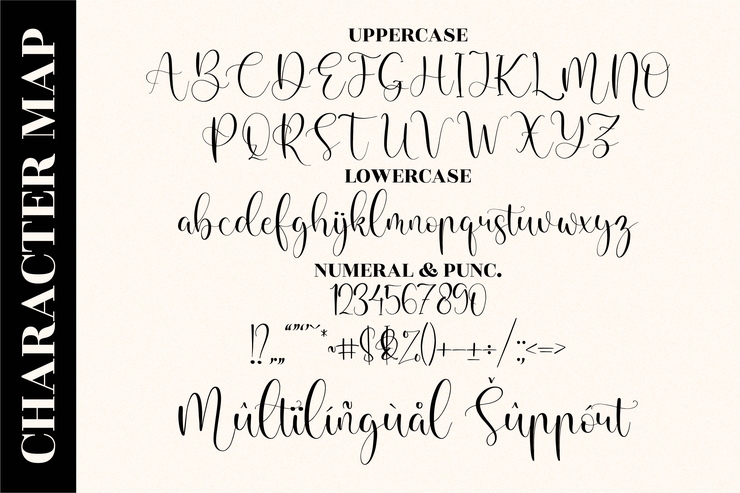 CHARACTER MAP
UPPERCASE
ABCDEFGHIJKLMNO
PQRSTUVWXYZ
LOWERCASE
abcdefghijklmnopqrstuvwxyz
NUMERAL & PUNC.
1234567890
Mûltïlíñgùål Šûppórt